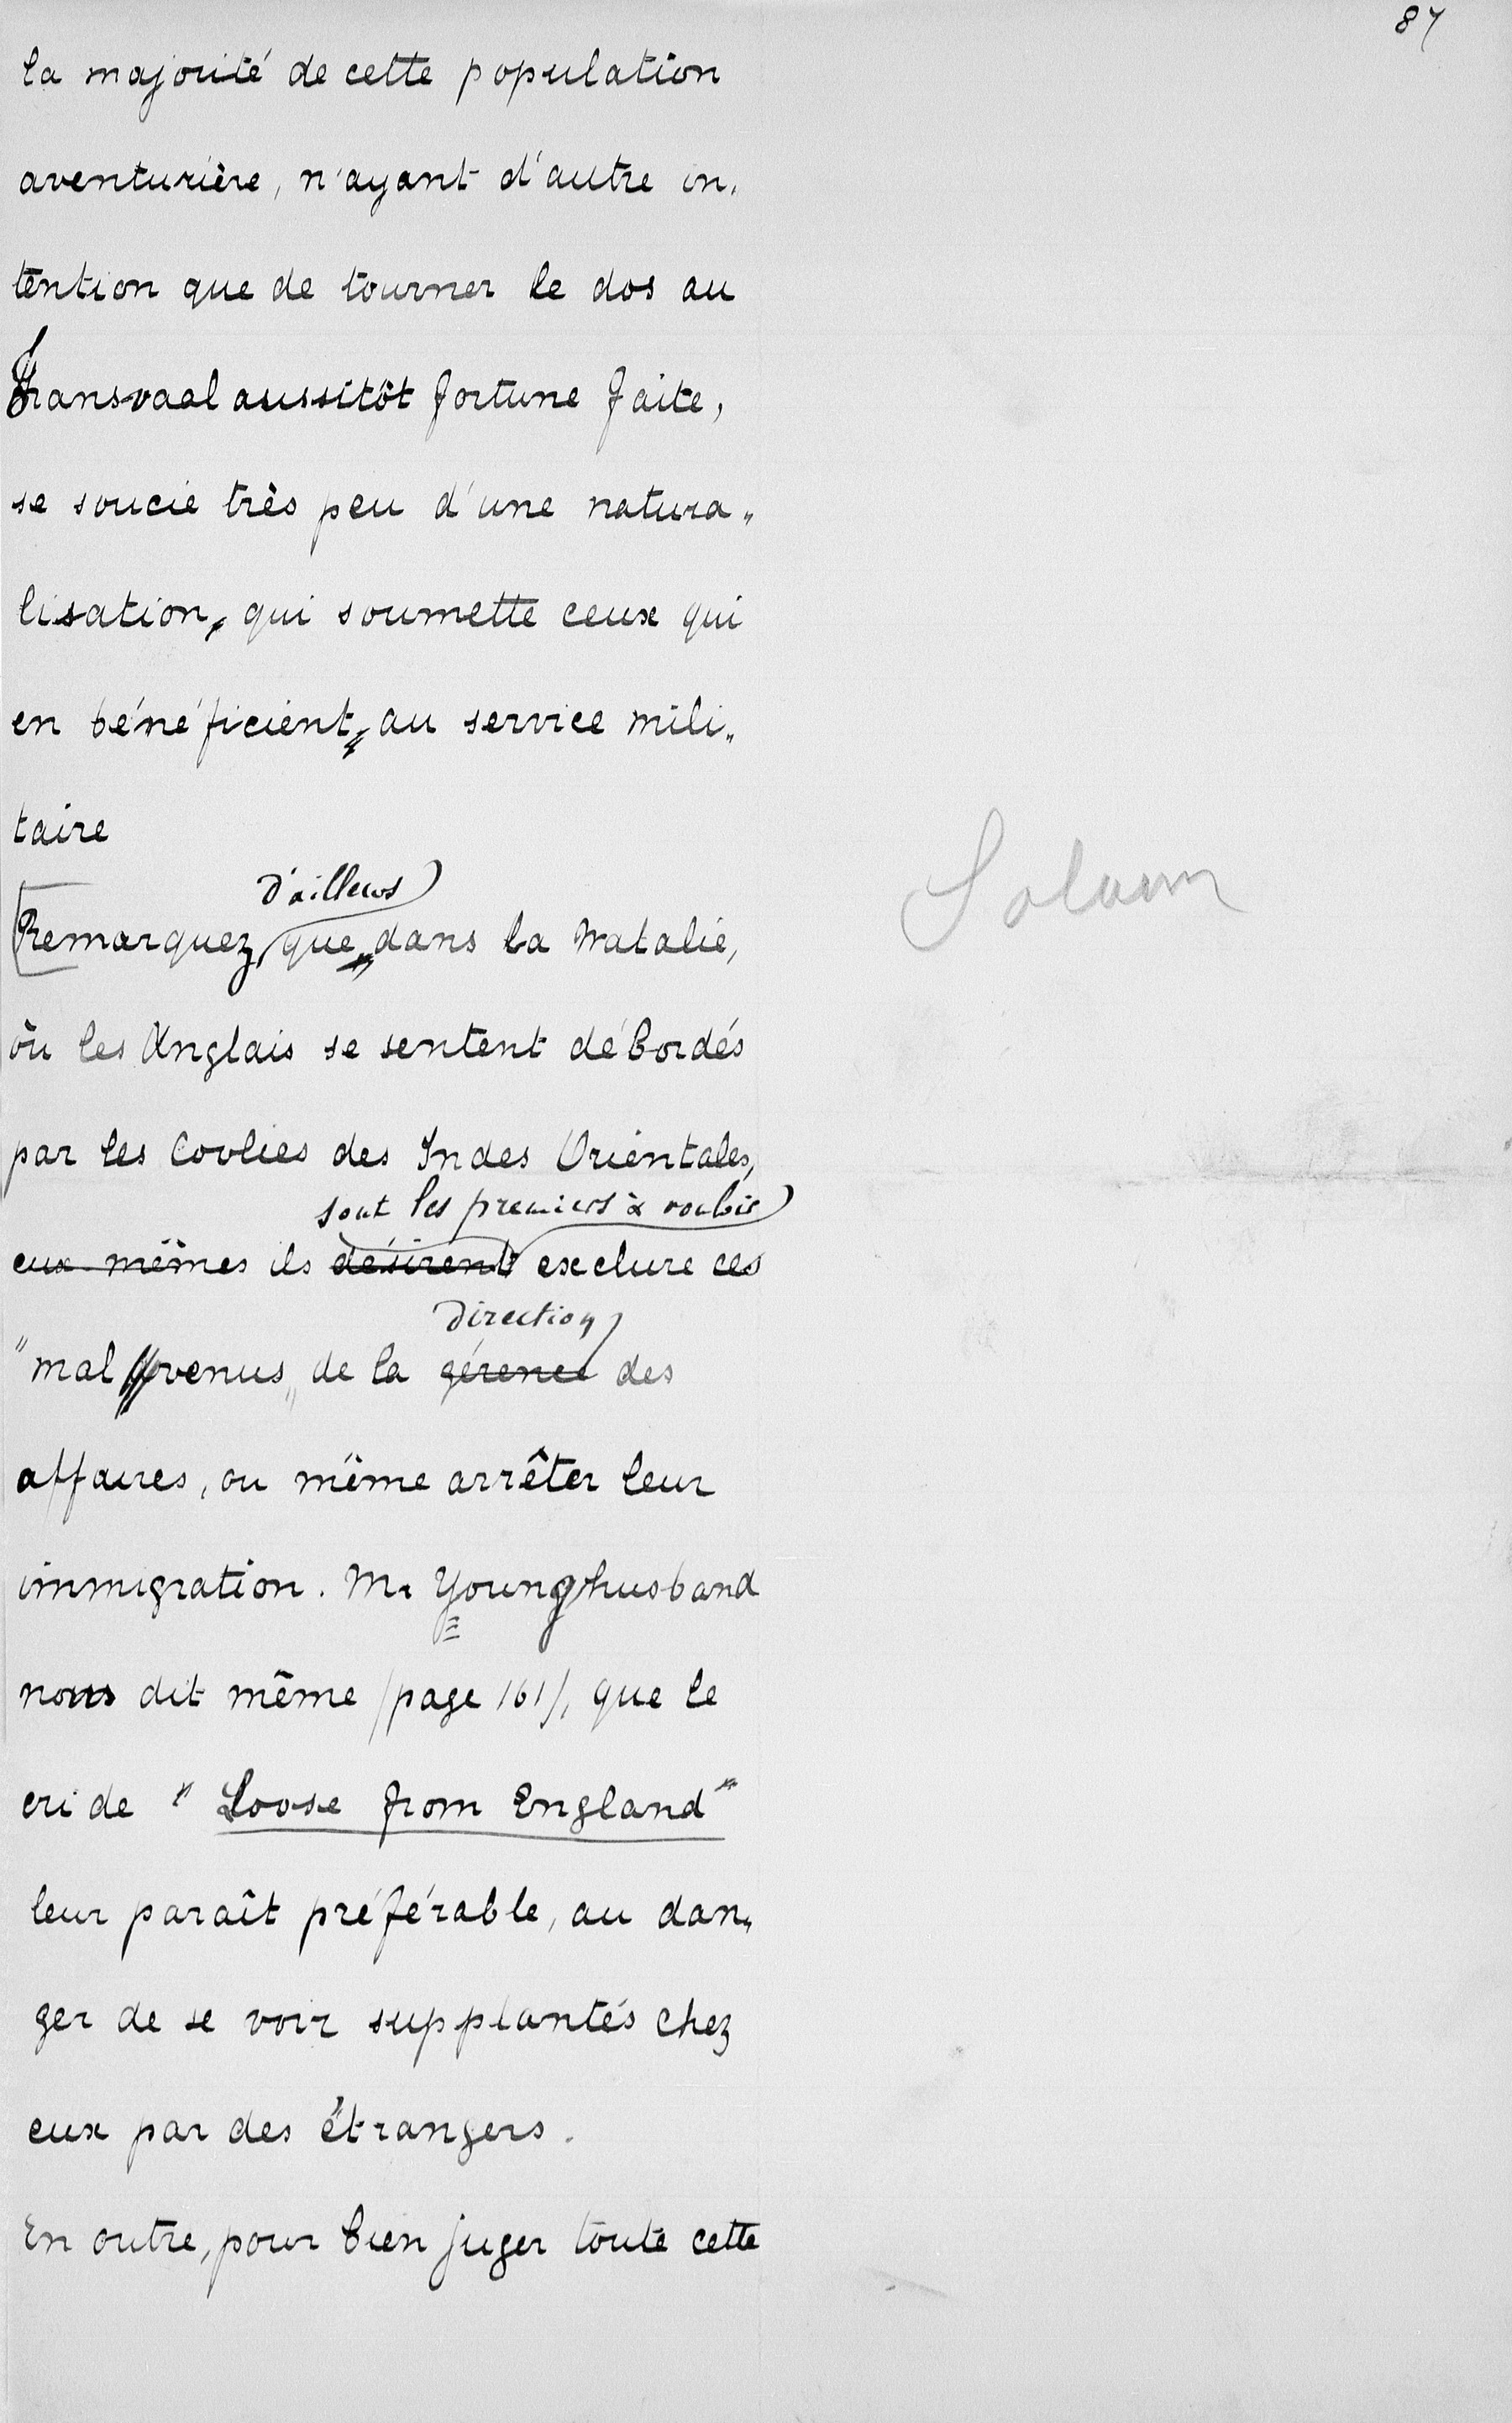 87
la majorité de cette population
aventurière, n'ayant d'autre in„
tention que de tourner le dos au
Transvaal aussitôt fortune faite,
se soucie très peu d'une natura„
lisation, qui soumette ceux qui
en bénéficient, au service mili„
taire
d'ailleurs
[Remarquez, que, dans la Natalie,
où les Anglais se sentent débordés
par les Coolies des Indes Orientales,
sont les premiers à vouloir
eux-mêmes ils désirent exclure ces
direction
"mal venus„ de la gérence des
affaires, ou même arrêter leur
immigration. Mr Younghusband
nous dit même (page 161), que le
cri de "Loose from England"
leur paraît préférable, au dan„
ger de se voir supplantés chez
eux par des étrangers.
En outre, pour bien juger toute cette